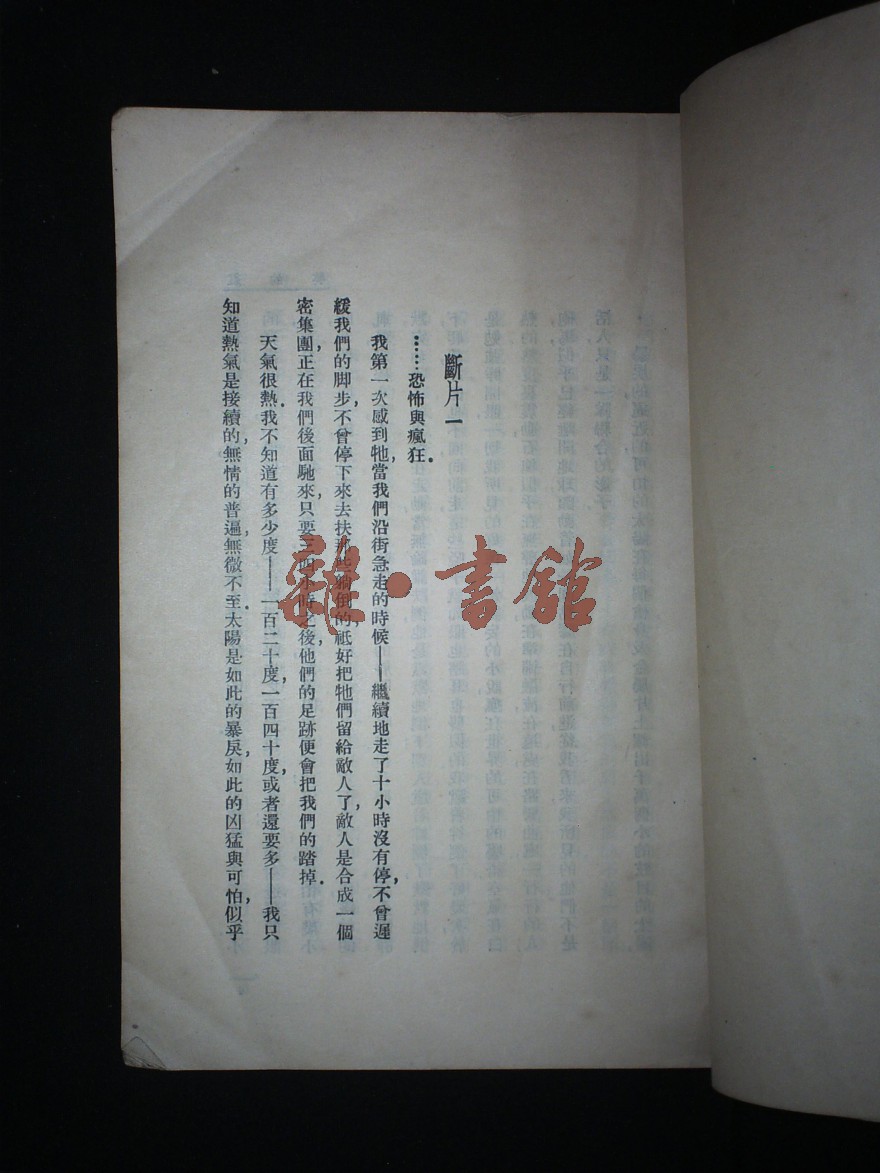 斷片一
……恐怖與瘋狂．
我第一次感到牠，當我們沿街急走的時候——繼續地走了十小時沒有停，不曾遲
緩我們的脚步，不曾停下來去扶那些躺倒的祗好把牠們留給敵人了，敵人是合成一個
密集團正在我們後面馳來，只要三四小時之後他們的足跡便會把我們的踏掉．
天氣很熱．我不知道有多少度——一百二十度，一百四十度，或者還要多——我只
知道熱氣是接續的，無情的普遍，無微不至．太陽是如此的暴戾，如此的凶猛與可怕，似乎
雜·書館